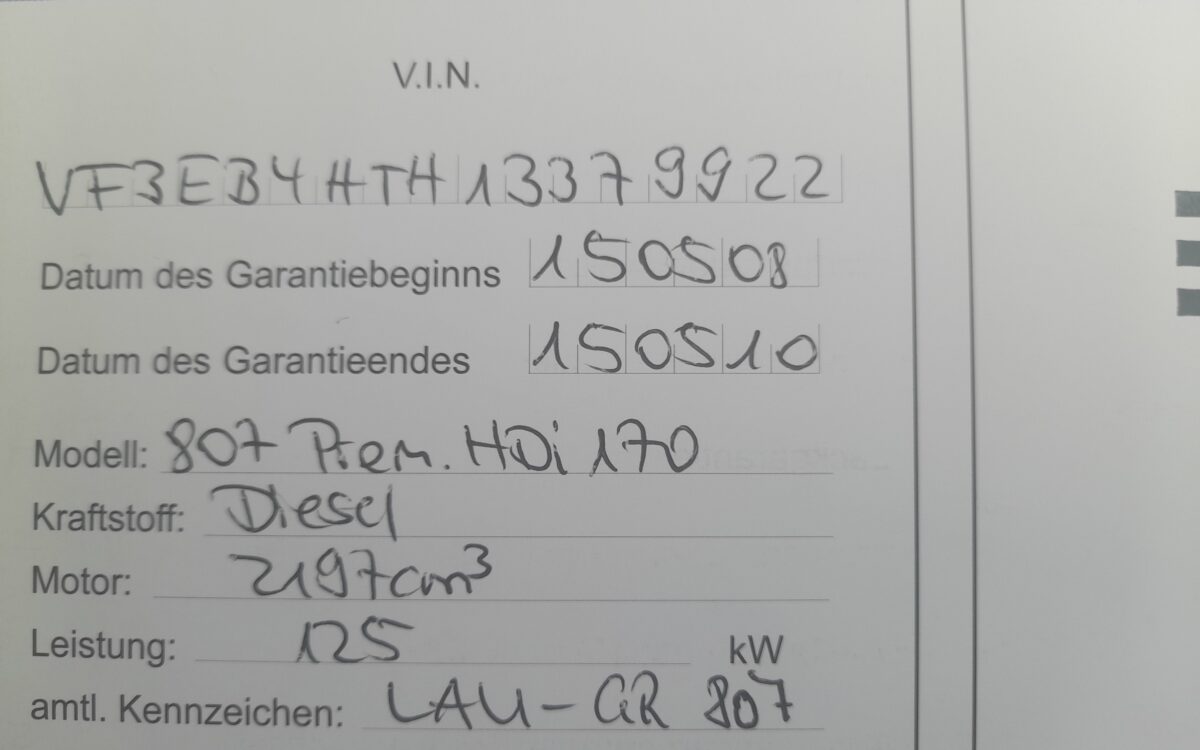 V.I.N.
VF3EB4HTH13379922
Datum des Garantiebeginns 150508
Datum des Garantieendes 150510
Modell: 807 Prem. HDi 170
Kraftstoff: Diesel
Motor: 2197cm³
Leistung: 125 kW
amtl. Kennzeichen: LAU-GR 807